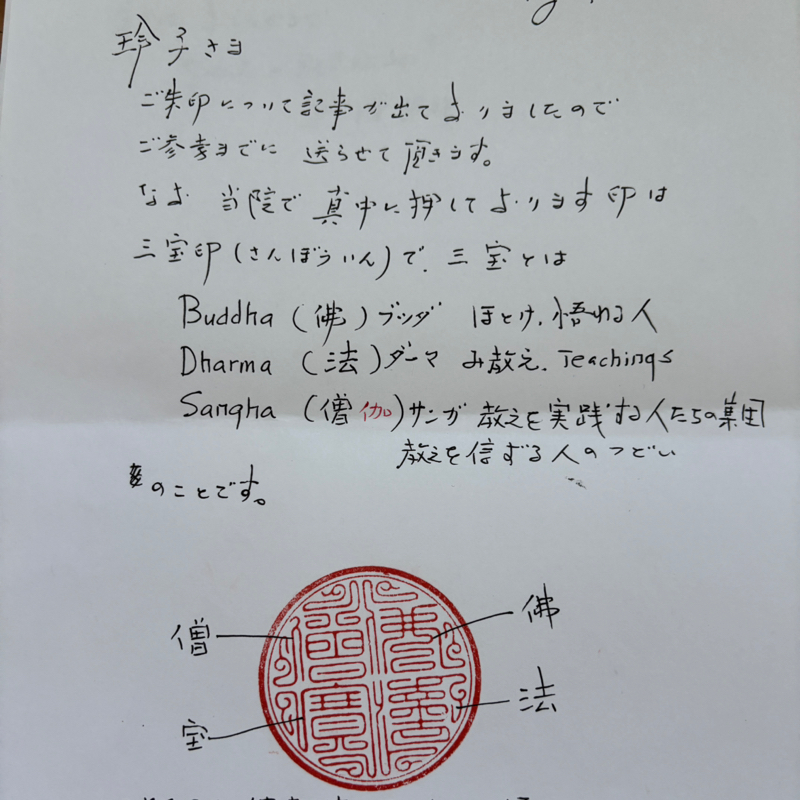 玲子さま
ご朱印について記事が出ておりましたので
ご参考までに 送らせて頂きます。
なお 当院で 真中に押しております印は
三宝印(さんぼういん)で、三宝とは
Buddha (佛)ブッダ ほとけ、悟れる人
Dharma (法)ダーマ み教え、Teachings
Sangha (僧伽)サンガ 教えを実践する人たちの集団
教えを信ずる人のつどい
のことです。
僧
佛
宝
法